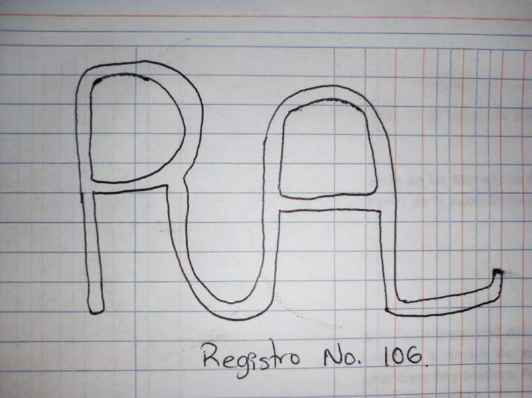 RAL
Registro No. 106.